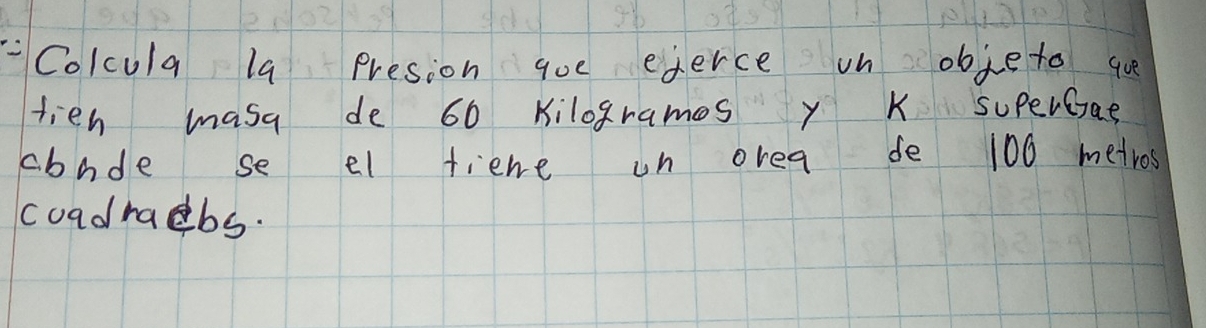 Calcula la Presion que ejerce un objeto que
tien masa de 60 Kilogramos y K superGae
donde se el tiene un area de 100 metros
cuadrados.